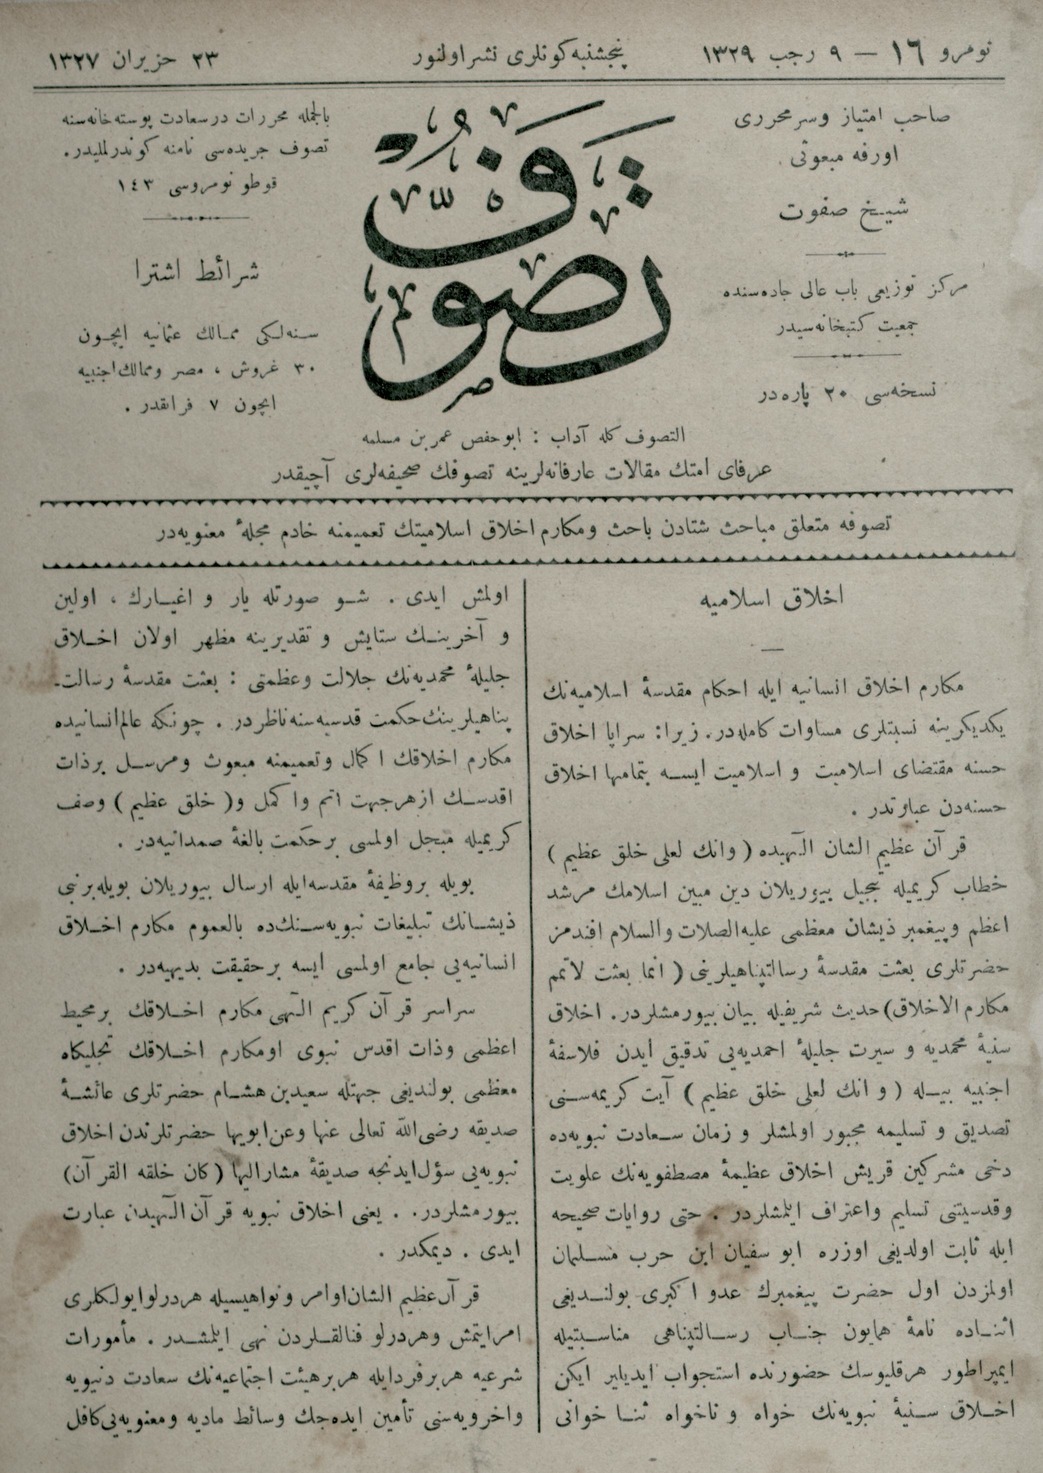 نومرو ١٦ — ٩ رجب ١٣٢٩
پنجشنبه كونلری نشر اولنور
٢٣ حزيران ١٣٢٧
صاحب امتياز وسرمحرری
اورفه مبعوثی
شيخ صفوت
مركز توزيعی باب عالی جاده‌سنده
جمعيت كتبخانه‌سيدر
نسخه‌سی ٢٠ پاره‌در
تصوف
بالجمله محررات درسعادت پوسته‌خانه‌سنه
تصوف جريده‌سی نامنه كوندرلمليدر.
قوطو نومروسی ١٤٣
شرائط اشترا
سنه‌لكی ممالك عثمانيه ايچون
٣٠ غروش ، مصر وممالك اجنبيه
ايچون ٧ فرانقدر .
التصوف كله آداب : ابوحفص عمر بن مسلمه
عرفای امتك مقالات عارفانه‌لرينه تصوفك صحيفه‌لری آچيقدر
تصوفه متعلق مباحث شتادن باحث ومكارم اخلاق اسلاميتك تعميمنه خادم مجلهٔ معنويه‌در
اخلاق اسلاميه
مكارم اخلاق انسانيه ايله احكام مقدسهٔ اسلاميه‌نك
يكديكرينه نسبتلری مساوات كامله‌در. زيرا: سراپا اخلاق
حسنه مقتضای اسلاميت و اسلاميت ايسه بتمامها اخلاق
حسنه‌دن عبارتدر .
قرآن عظيم الشان الٓهيده ( وانك لعلی خلق عظيم )
خطاب كريميله تبجيل بيوريلان دين مبين اسلامك مرشد
اعظم وپيغمبر ذيشان معظمی عليه‌الصلات والسلام افندمز
حضرتلری بعثت مقدسهٔ رسالتپناهيلرينی ( انما بعثت لاتمم
مكارم الاخلاق) حديث شريفيله بيان بيورمشلردر. اخلاق
سنيهٔ محمديه و سيرت جليلهٔ احمديه‌يی تدقيق ايدن فلاسفهٔ
اجنبيه بيله ( و انك لعلی خلق عظيم ) آيت كريمه‌سنی
تصديق و تسليمه مجبور اولمشلر و زمان سعادت نبويه‌ده
دخی مشركين قريش اخلاق عظيمهٔ مصطفويه‌نك علويت
وقدسيتنی تسليم واعتراف ايلمشلردر . حتی روايات صحيحه
ايله ثابت اولديغی اوزره ابو سفيان ابن حرب مسلمان
اولمزدن اول حضرت پيغمبرك عدو اكبری بولنديغی
اثناده نامهٔ همايون جناب رسالتپناهی مناسبتيله
ايمپراطور هرقليوسك حضورنده استجواب ايديلير ايكن
اخلاق سنيهٔ نبويه‌نك خواه و ناخواه ثنا خوانی
اولمش ايدی . شو صورتله يار و اغيارك ، اولين
و آخرينك ستايش و تقديرينه مظهر اولان اخلاق
جليلهٔ محمديه‌نك جلالت وعظمتی : بعثت مقدسهٔ رسالت-
پناهيلرينك حكمت قدسيه‌سنه ناظردر . چونكه عالم انسانيده
مكارم اخلاقك اكمال وتعميمنه مبعوث ومرسل برذات
اقدسك ازهرجهت اتم واكمل و( خلق عظيم ) وصف
كريميله مبجل اولمسی برحكمت بالغهٔ صمدانيه‌در .
بويله بروظيفهٔ مقدسه‌ايله ارسال بيوريلان بويله برنبی
ذيشانك تبليغات نبويه‌سنك‌ده بالعموم مكارم اخلاق
انسانيه‌يی جامع اولمسی ايسه برحقيقت بديهيه‌در .
سراسر قرآن كريم الٓهی مكارم اخلاقك برمحيط
اعظمی وذات اقدس نبوی اومكارم اخلاقك تجليكاه
معظمی بولنديغی جهتله سعيدبن هشام حضرتلری عائشهٔ
صديقه رضی‌الله تعالی عنها وعن‌ابويها حضرتلرندن اخلاق
نبويه‌يی سؤل‌ايدنجه صديقهٔ مشاراليها ( كان خلقه القرآن)
بيورمشلردر. . يعنی اخلاق نبويه قرآن الٓهيدن عبارت
ايدی . ديمكدر .
قرآن عظيم الشان اوامر ونواهيسيله هردرلو ايولكلری
امرايتمش وهردرلو فنالقلردن نهی ايلمشدر . مأمورات
شرعيه هربرفردايله هربرهيئت اجتماعيه‌نك سعادت دنيويه
واخرويه‌سنی تأمين ايده‌جك وسائط ماديه ومعنويه‌يی‌كافل